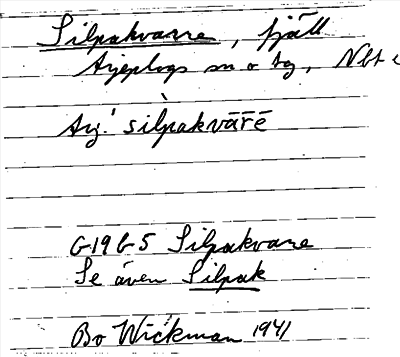 Silpakvarre, fjäll
Arjeplogs sn o tg, Nbt
Arj. silpàkvārē
G 19 G 5 Silpakvare
Se även Silpak
Bo Wickman 1941